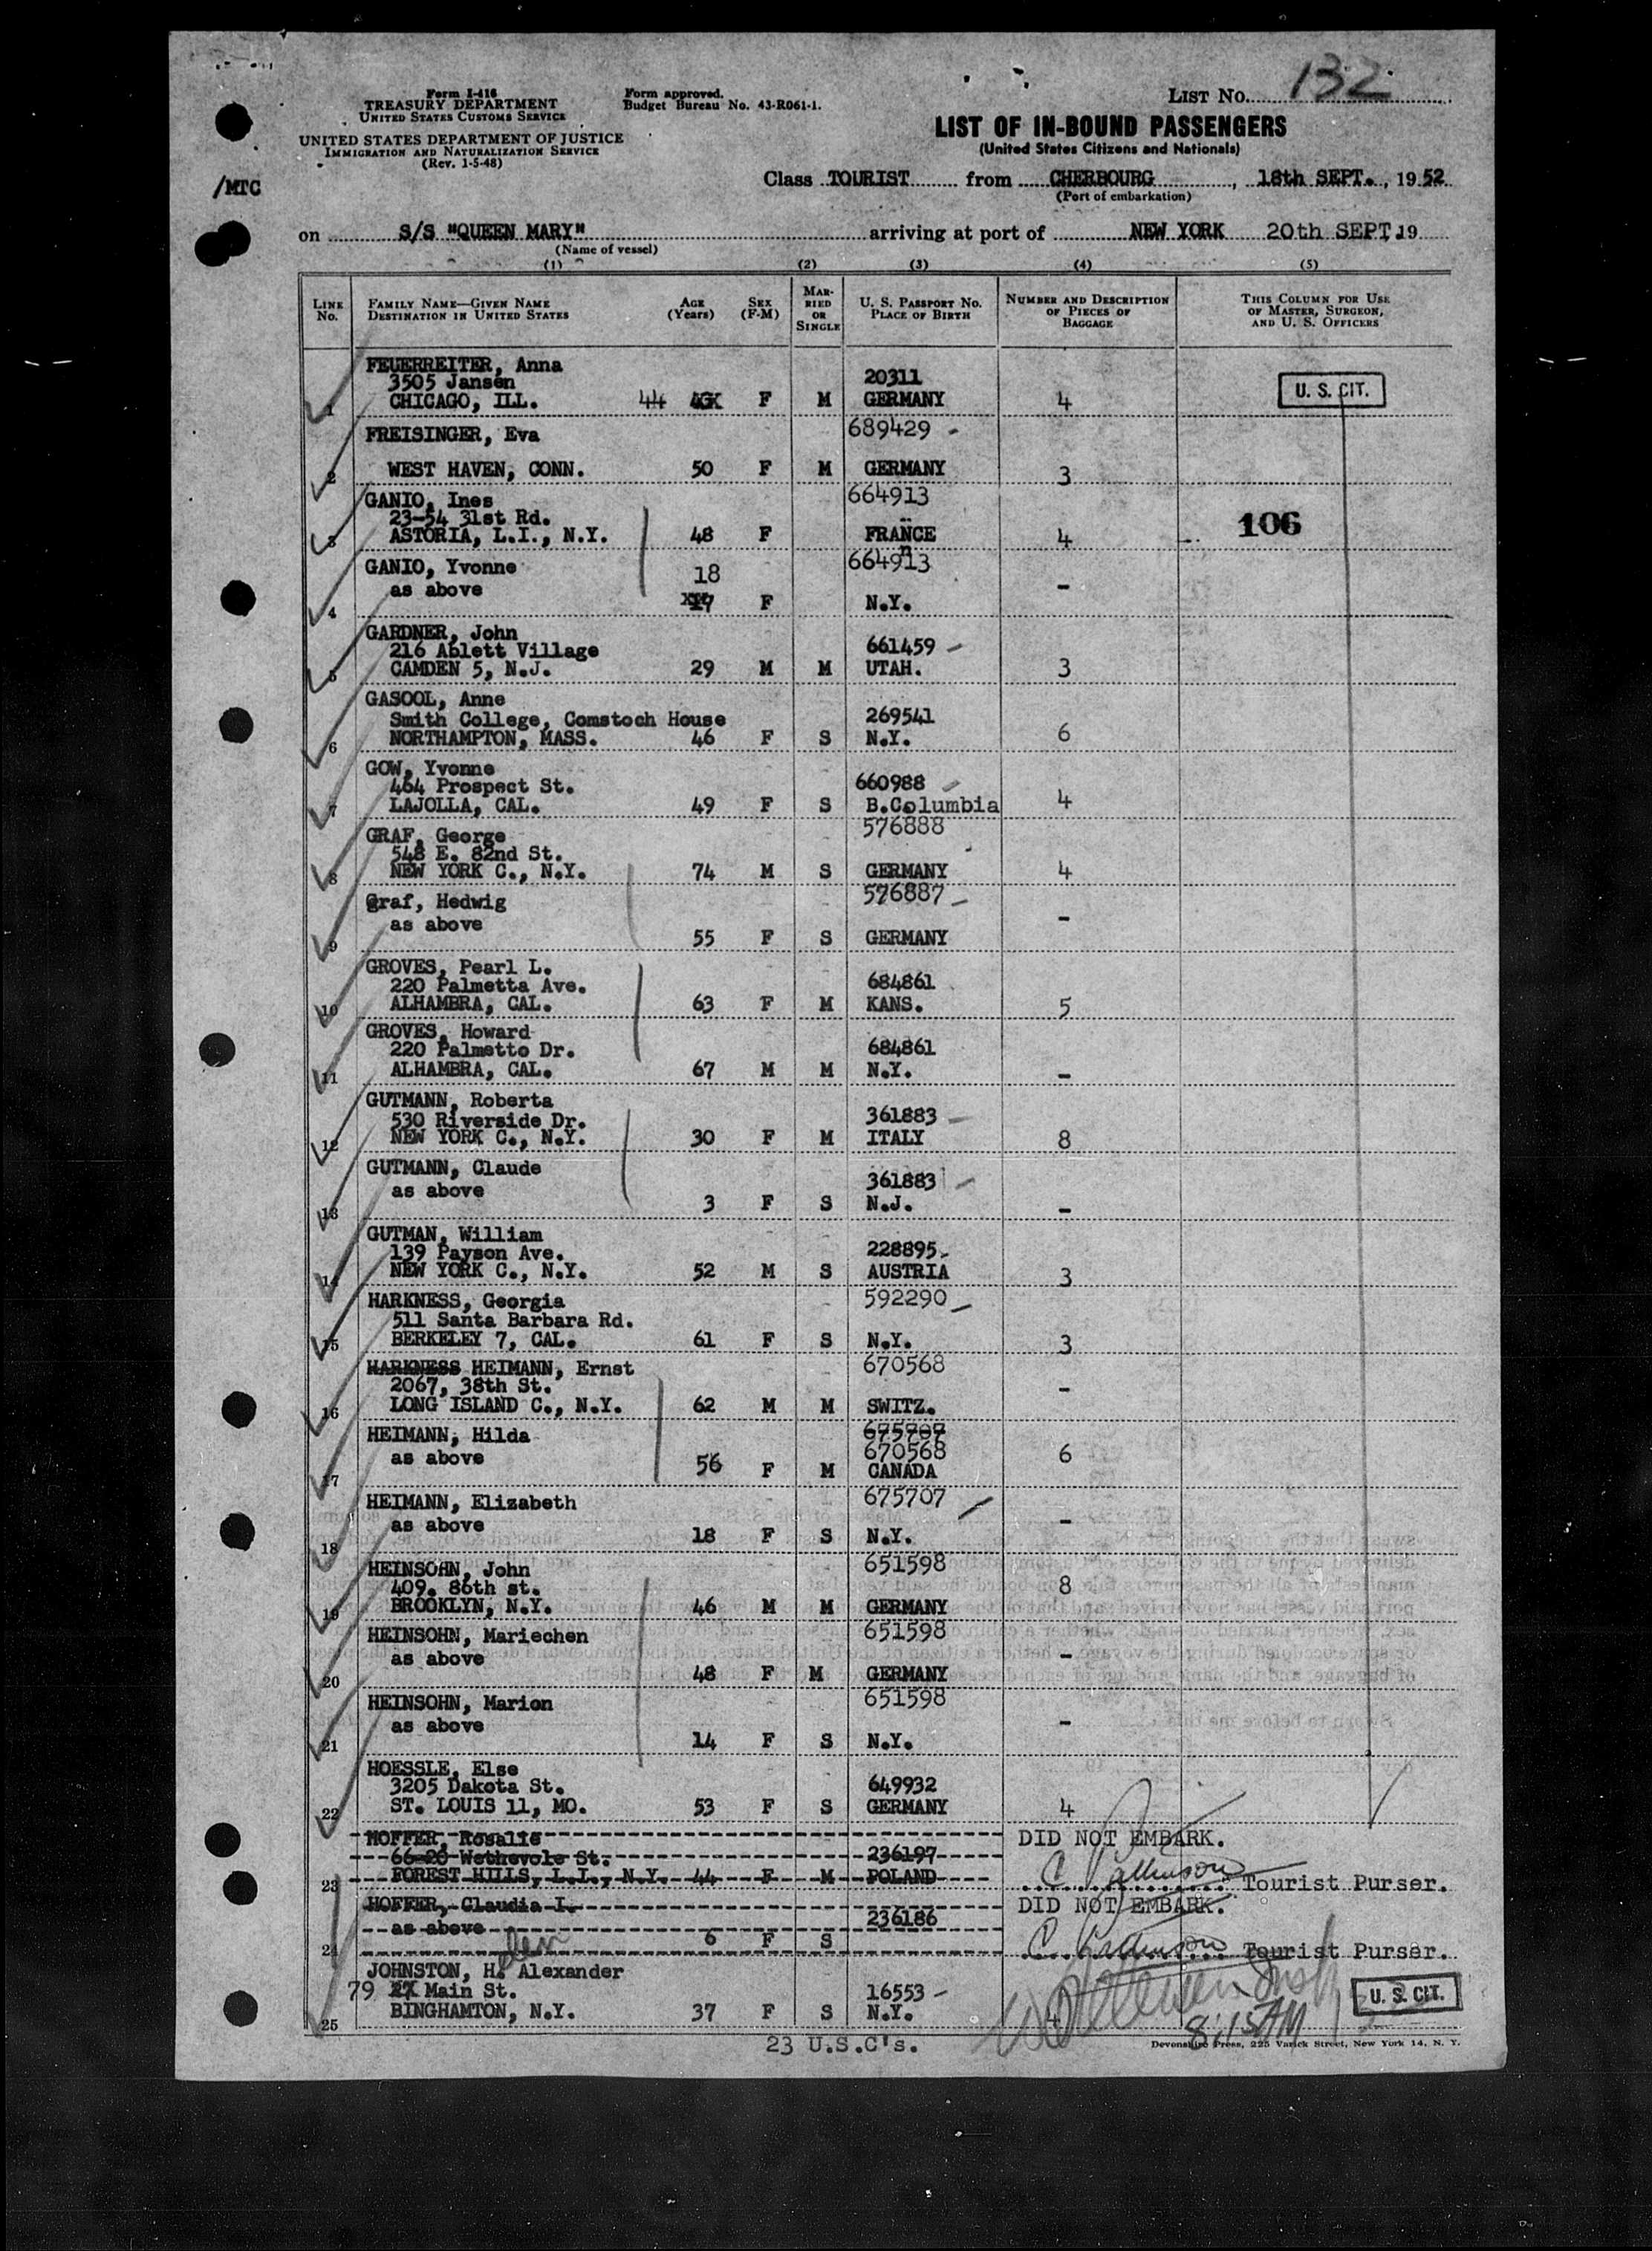 LIST No. 132
Form I-416
TREASURY DEPARTMENT
UNITED STATES CUSTOMS SERVICE
UNITED STATES DEPARTMENT OF JUSTICE
IMMIGRATION AND NATURALIZATION SERVICE
(Rev. 1-5-48)
Form approved.
Budget Bureau No. 43-R061-1.
LIST OF IN-BOUND PASSENGERS
(United States Citizens and Nationals)
/MTC
Class TOURIST from CHERBOURG, 18th SEPT., 1952
(Port of embarkation)
on S/S "QUEEN MARY" arriving at port of NEW YORK 20th SEPT. 19
(Name of vessel)
(1) (2) (3) (4) (5)
LINE No. FAMILY NAME—GIVEN NAME DESTINATION IN UNITED STATES AGE (Years) SEX (F-M) MARRIED OR SINGLE U. S. PASSPORT NO. PLACE OF BIRTH NUMBER AND DESCRIPTION OF PIECES OF BAGGAGE THIS COLUMN FOR USE OF MASTER, SURGEON, AND U. S. OFFICERS
FEUERREITER, Anna
3505 Jansen 20311
1 CHICAGO, ILL. 44 F M GERMANY 4 U. S. CIT.
FREISINGER, Eva 689429
2 WEST HAVEN, CONN. 50 F M GERMANY 3
GANIO, Ines 664913
23-54 31st Rd.
3 ASTORIA, L.I., N.Y. 48 F FRANCE 4 106
GANIO, Yvonne 18 664913
as above -
4 17 F N.Y.
GARDNER, John
216 Ablett Village 661459
5 CAMDEN 5, N.J. 29 M M UTAH. 3
GASOOL, Anne
Smith College, Comstoch House 269541
6 NORTHAMPTON, MASS. 46 F S N.Y. 6
GOW, Yvonne
464 Prospect St. 660988
7 LAJOLLA, CAL. 49 F S B.Columbia 4
GRAF, George 576888
548 E. 82nd St.
8 NEW YORK C., N.Y. 74 M S GERMANY 4
Graf, Hedwig 576887
as above -
9 55 F S GERMANY
GROVES, Pearl L.
220 Palmetta Ave. 684861
10 ALHAMBRA, CAL. 63 F M KANS. 5
GROVES, Howard
220 Palmetto Dr. 684861
11 ALHAMBRA, CAL. 67 M M N.Y. -
GUTMANN, Roberta
530 Riverside Dr. 361883
12 NEW YORK C., N.Y. 30 F M ITALY 8
GUTMANN, Claude
as above 361883
13 3 F S N.J. -
GUTMAN, William
139 Payson Ave. 228895
14 NEW YORK C., N.Y. 52 M S AUSTRIA 3
HARKNESS, Georgia 592290
511 Santa Barbara Rd.
15 BERKELEY 7, CAL. 61 F S N.Y. 3
HARKNESS HEIMANN, Ernst 670568
2067, 38th St. -
16 LONG ISLAND C., N.Y. 62 M M SWITZ.
HEIMANN, Hilda 675707
as above 670568 6
17 56 F M CANADA
HEIMANN, Elizabeth 675707
as above -
18 18 F S N.Y.
HEINSOHN, John 651598
409. 86th st. 8
19 BROOKLYN, N.Y. 46 M M GERMANY
HEINSOHN, Mariechen 651598
as above -
20 48 F M GERMANY
HEINSOHN, Marion 651598
as above -
21 14 F S N.Y.
HOESSLE, Else
3205 Dakota St. 649932
22 ST. LOUIS 11, MO. 53 F S GERMANY 4
HOFFER, Rosalie DID NOT EMBARK.
66-20 Wethevole St. 236197
23 FOREST HILLS, L.I., N.Y. 44 F M POLAND Tourist Purser.
HOFFER, Claudia I. DID NOT EMBARK.
as above 236186
24 6 F S Tourist Purser.
JOHNSTON, H. Alexander
79 Main St. 16553 U. S. CIT.
25 BINGHAMTON, N.Y. 37 F S N.Y. 4 8:15AM
23 U.S.C's.
Devonshire Press, 225 Varick Street, New York 14, N. Y.